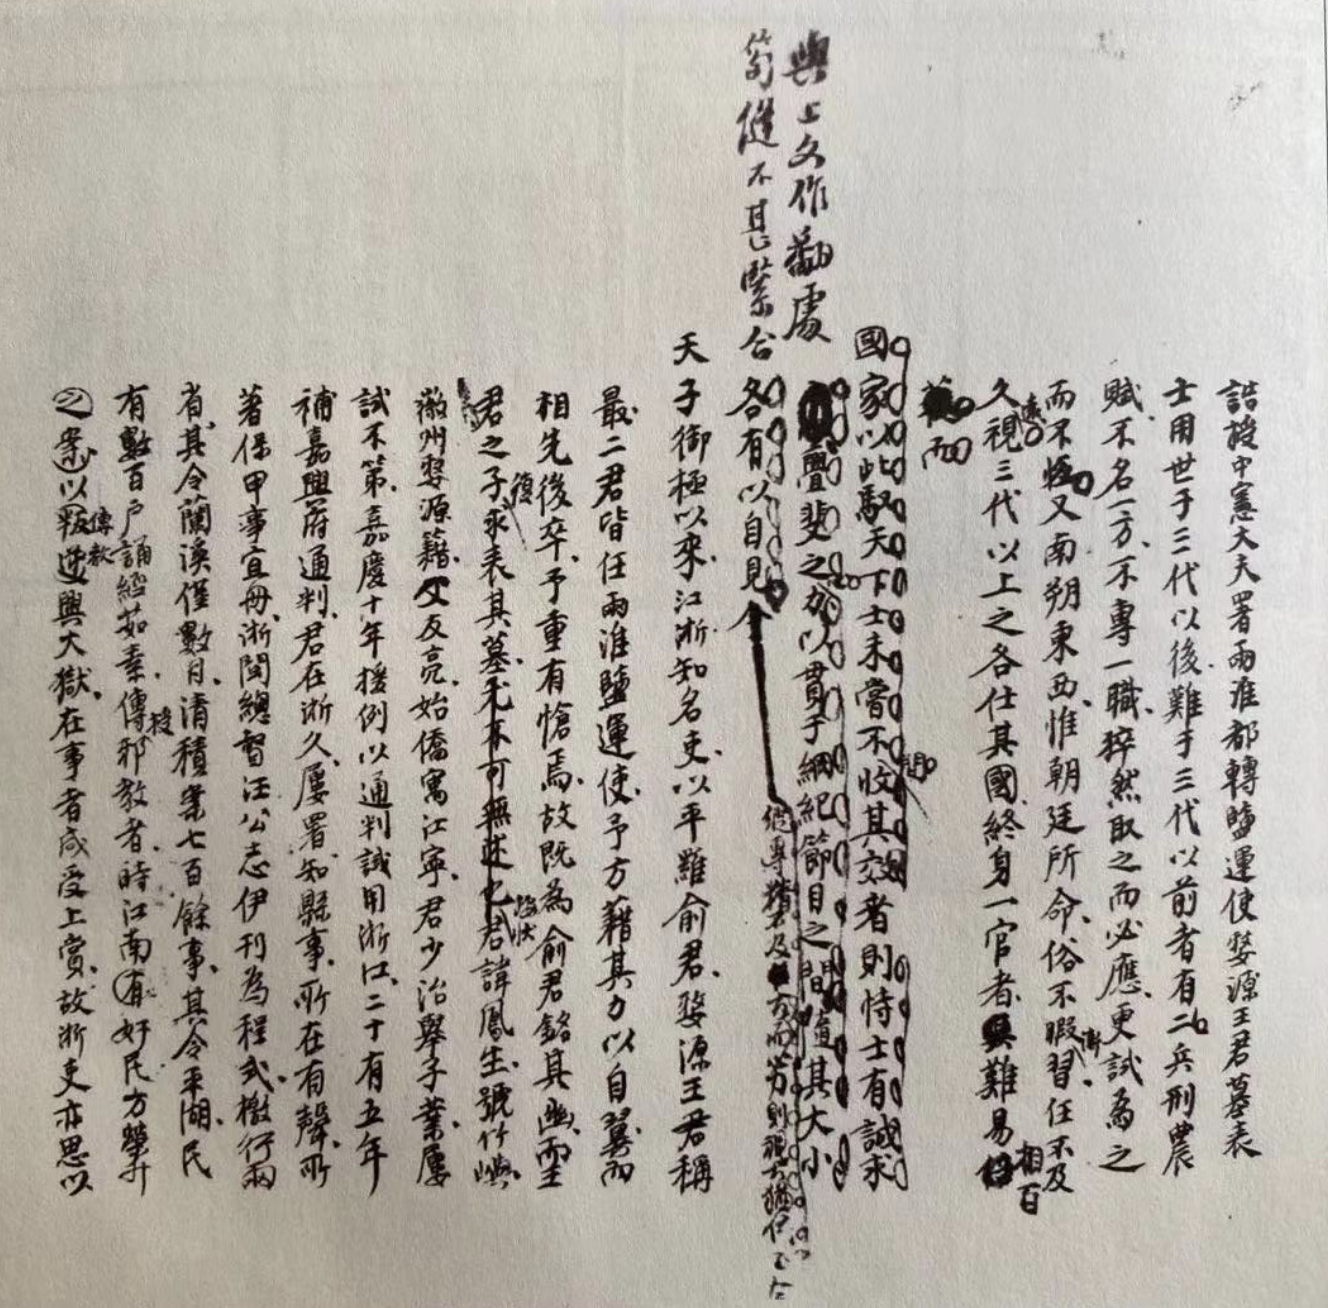 誥授中憲大夫署兩淮都轉鹽運使婺源王君墓表
士用世于三代以後難于三代以前者有二兵刑農
賦不名一方不專一職猝然取之而必應更試為之
而不恆又南朔東西惟朝廷所命俗不暇習任不及
久視三代以上之各仕其國終身一官者難易
相百
而
國家以此馭天下士未嘗不收其效者則恃士有誠求
亹斐之力以貫于綱紀節目之間與上文作翻處
筍縫不甚緊合
各有以自見
天子御極以來江浙知名吏以平羅俞君婺源王君稱
最二君皆任兩淮鹽運使予方藉其力以自翼而
相先後卒予重有愴焉故既為俞君銘其幽而王
君之子復求表其墓
按狀
君諱鳳生號竹嶼
徽州婺源籍父友亮始僑寓江寧君少治舉子業屢
試不第嘉慶十年援例以通判試用浙江二十有五年
補嘉興府通判君在浙久屢署知縣事所在有聲所
著保甲事宜冊浙閩總督汪公志伊刊為程式檄行兩
省其令蘭溪僅數月清積案七百餘事其令平湖民
有數百戶誦經茹素傳授邪教者時江南有奸民方榮升
之案以叛逆興大獄在事者咸受上賞故浙吏亦思以
傳教